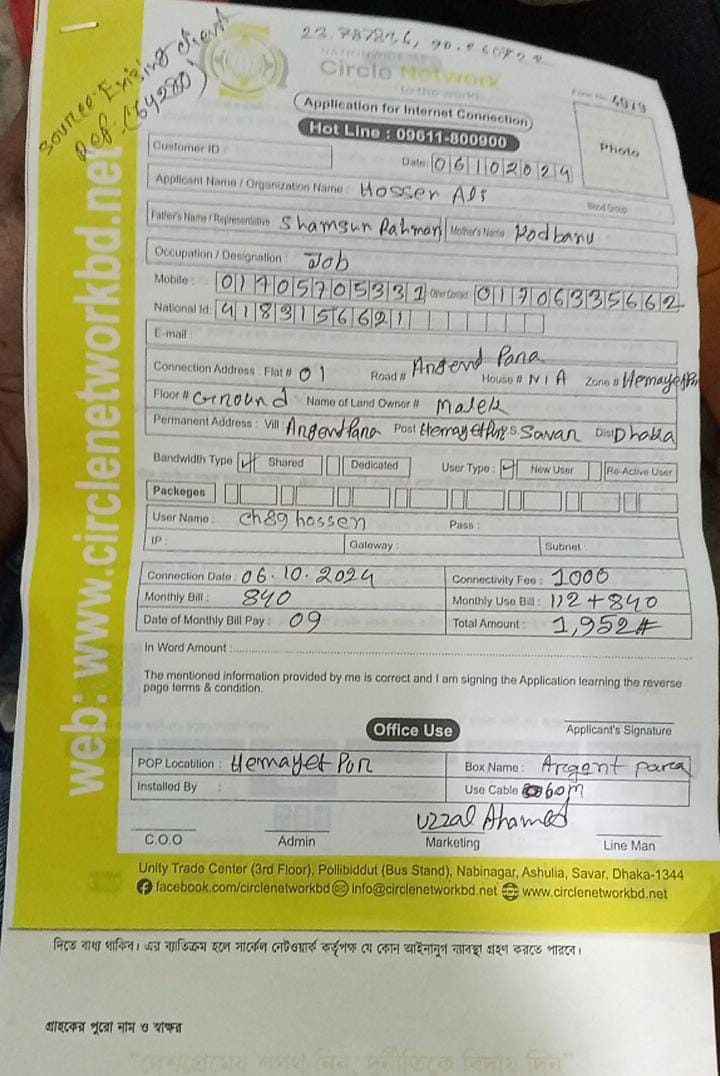 23.787216, 90.
Source: Existing client
Ref: (64280)
NATIONWIDE ISP
Circle Network
to the world
Form No. 4019
Application for Internet Connection
Hot Line : 09611-800900
Photo
Customer ID :
Date: 06102024
Applicant Name / Organization Name : Hossen Ali
Blood Group
Father's Name / Representative Shamsun Rahman Mother's Name Podbanu
Occupation / Designation : Job
Mobile : 01705705331 Other Contact 01706335662
National Id: 4183156621
E-mail :
Connection Address : Flat # 01 Road # Angend Para House # N/A Zone # Hemayetpur
Floor # Ground Name of Land Owner # Malek
Permanent Address : Vill Angend Para Post Hemayetpur P.S Savar Dist Dhaka
Bandwidth Type ✓ Shared Dedicated User Type : ✓ New User Re-Active User
Packeges
User Name : ch89hossen Pass :
IP : Gateway : Subnet :
Connection Date : 06.10.2024 Connectivity Fee : 1000
Monthly Bill : 840 Monthly Use Bill : 112+840
Date of Monthly Bill Pay : 09 Total Amount : 1,952#
In Word Amount :
The mentioned information provided by me is correct and I am signing the Application learning the reverse
page terms & condition.
Applicant's Signature
Office Use
POP Locatition : Hemayet Pur Box Name : Argent para
Installed By : Use Cable 60m
Uzzal Ahamed
C.O.O Admin Marketing Line Man
Unity Trade Center (3rd Floor), Pollibiddut (Bus Stand), Nabinagar, Ashulia, Savar, Dhaka-1344
facebook.com/circlenetworkbd info@circlenetworkbd.net www.circlenetworkbd.net
web: www.circlenetworkbd.net
দিতে বাধ্য থাকিব। এর ব্যতিক্রম হলে সার্কেল নেটওয়ার্ক কর্তৃপক্ষ যে কোন আইনানুগ ব্যবস্থা গ্রহণ করতে পারবে।
গ্রাহকের পুরো নাম ও স্বাক্ষর
"দেশপ্রেমের শপথ নিন, দুর্নীতিকে বিদায় দিন"